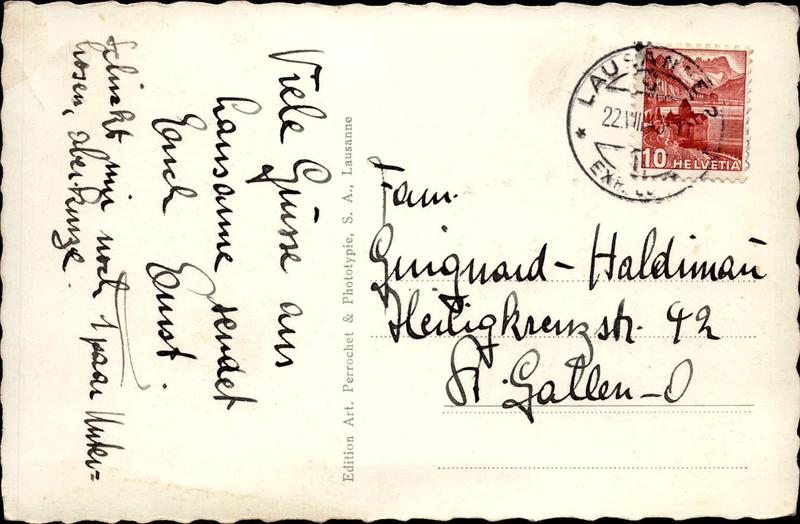 Viele Grüsse aus
Lausanne sendet
Euch Ernst.
Schickt mir noch 1 paar Unter=
hosen, aber kurze.
Edition Art. Perrochet & Phototypie, S. A., Lausanne
LAUSANNE
22.VIII
EXP. L
10 HELVETIA
Fam.
Guignard-Haldimann
Heiligkreuzstr. 42
St. Gallen-O